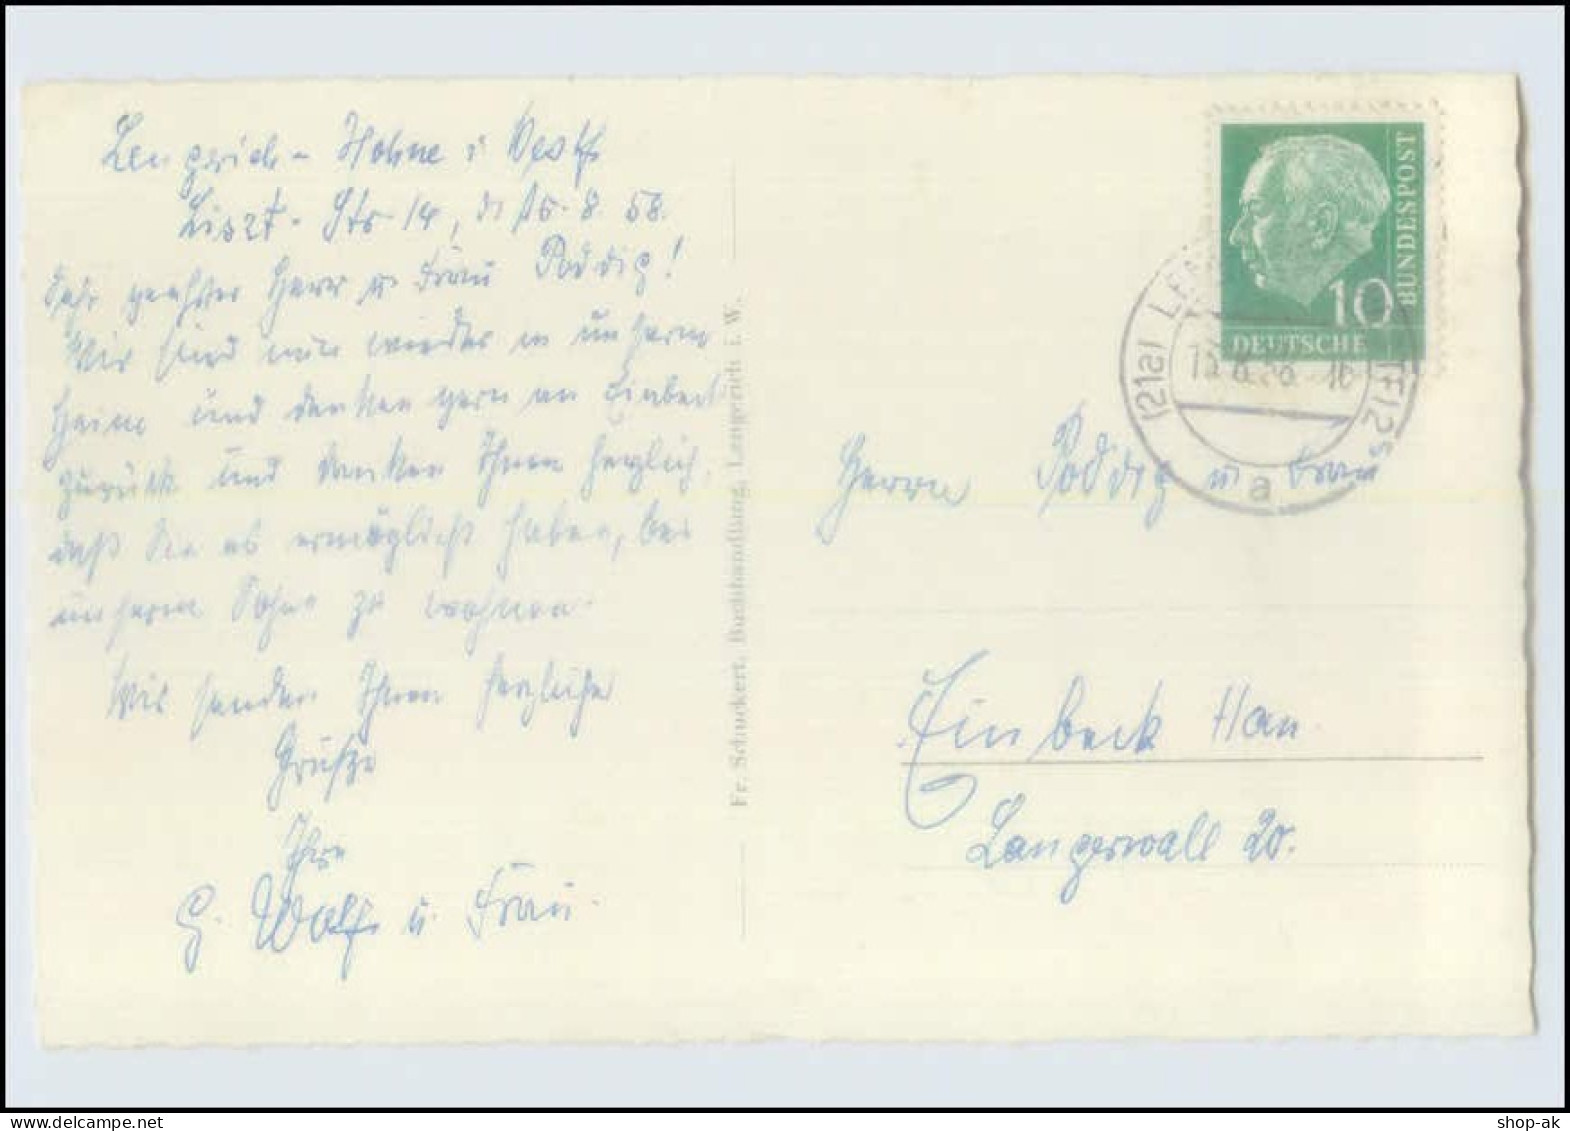 Lengerich-Hohne i Westf
Liszt-Str 14, d 15. 8. 58.
Sehr geehrter Herr u Frau Poddig!
Wir sind nun wieder in unserm
Heim und denken gern an Einbeck
zurück und danken Ihnen herzlich,
daß Sie es ermöglicht haben, bei
unserm Sohne zu wohnen.
Wir senden Ihnen herzliche
Grüße
Ihre
G. Wolf u. Frau.
Fr. Schuckert, Buchhandlung, Lengerich i. W.
DEUTSCHE
BUNDESPOST
10
(21a) LEN
TF) 2
a
Herrn Poddig u Frau
Einbeck Han.
Langerwall 20.
shop-ak